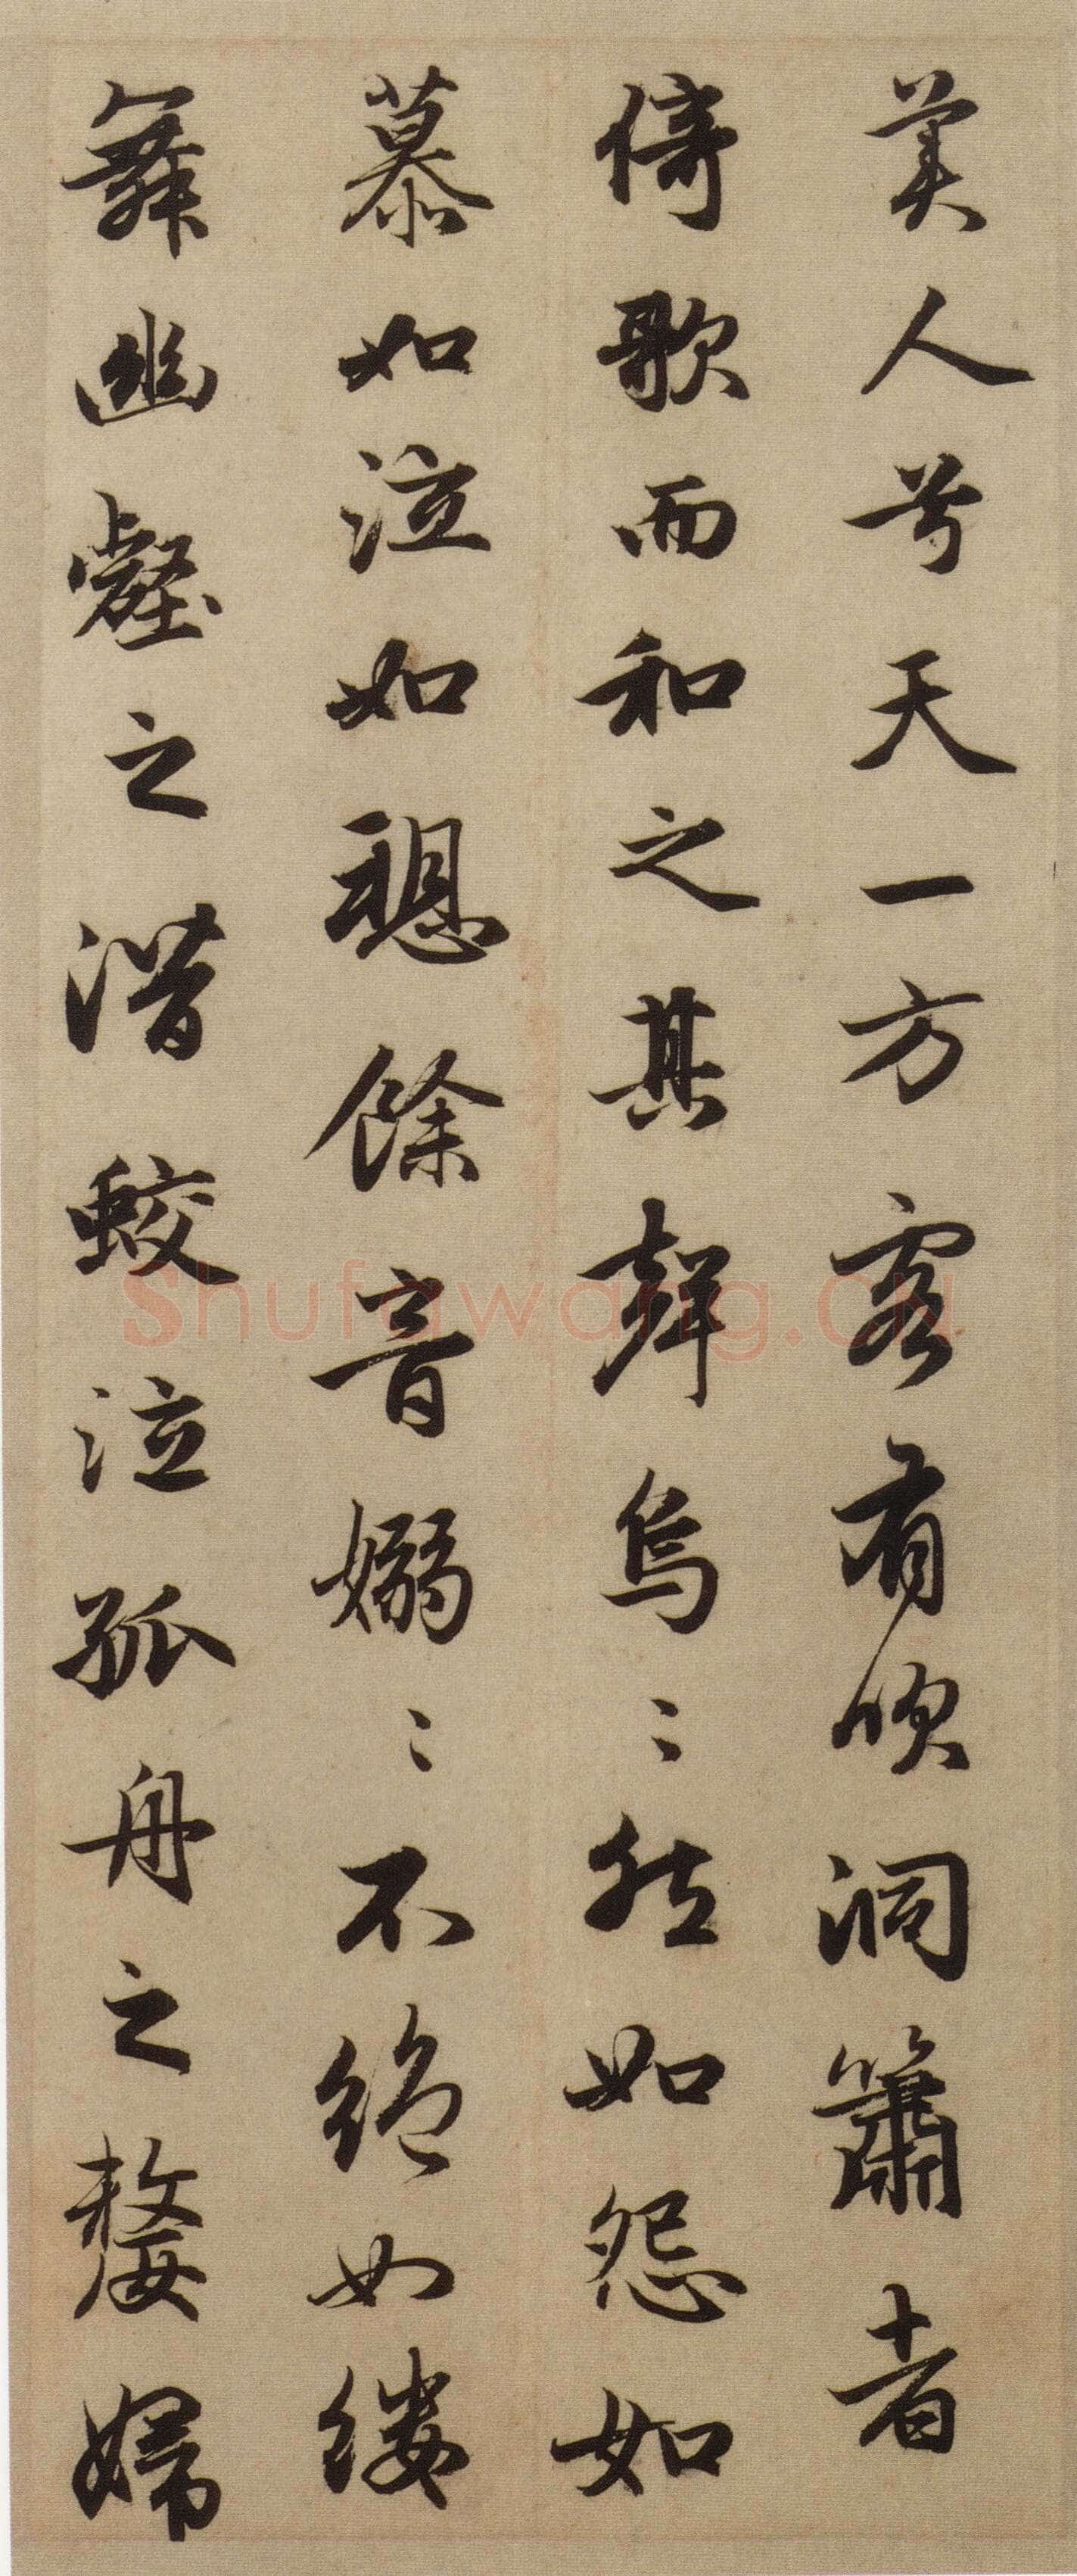 美人兮天一方客有吹洞簫者
倚歌而和之其聲烏〻然如怨如
慕如泣如愬餘音嫋〻不絕如縷
舞幽壑之潛蛟泣孤舟之嫠婦
Shufawang.cn